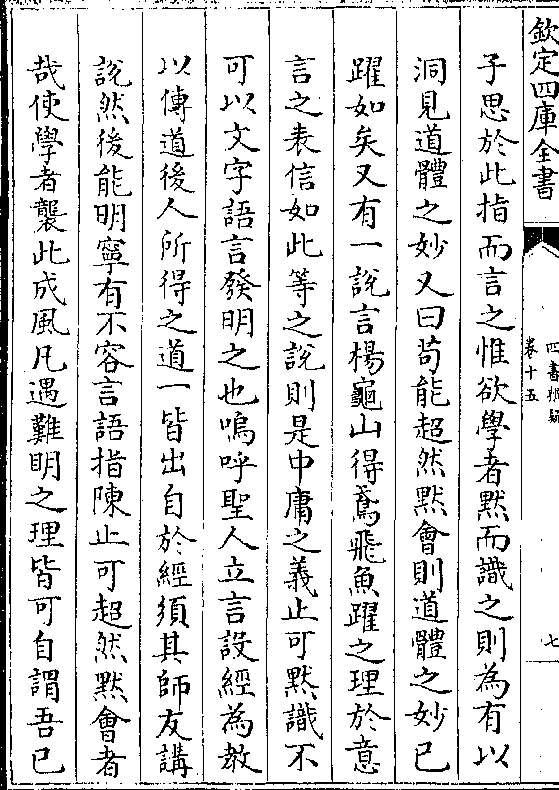 欽定四庫全書
四書辨疑
卷十五
七
子思於此指而言之惟欲學者黙而識之則為有以
洞見道體之妙又曰苟能超然黙會則道體之妙已
躍如矣又有一說言楊龜山得鳶飛魚躍之理於意
言之表信如此等之說則是中庸之義止可黙識不
可以文字語言發明之也嗚呼聖人立言設經為教
以傳道後人所得之道一皆出自於經須其師友講
說然後能明寧有不容言語指陳止可超然黙會者
哉使學者襲此成風凡遇難明之理皆可自謂吾已